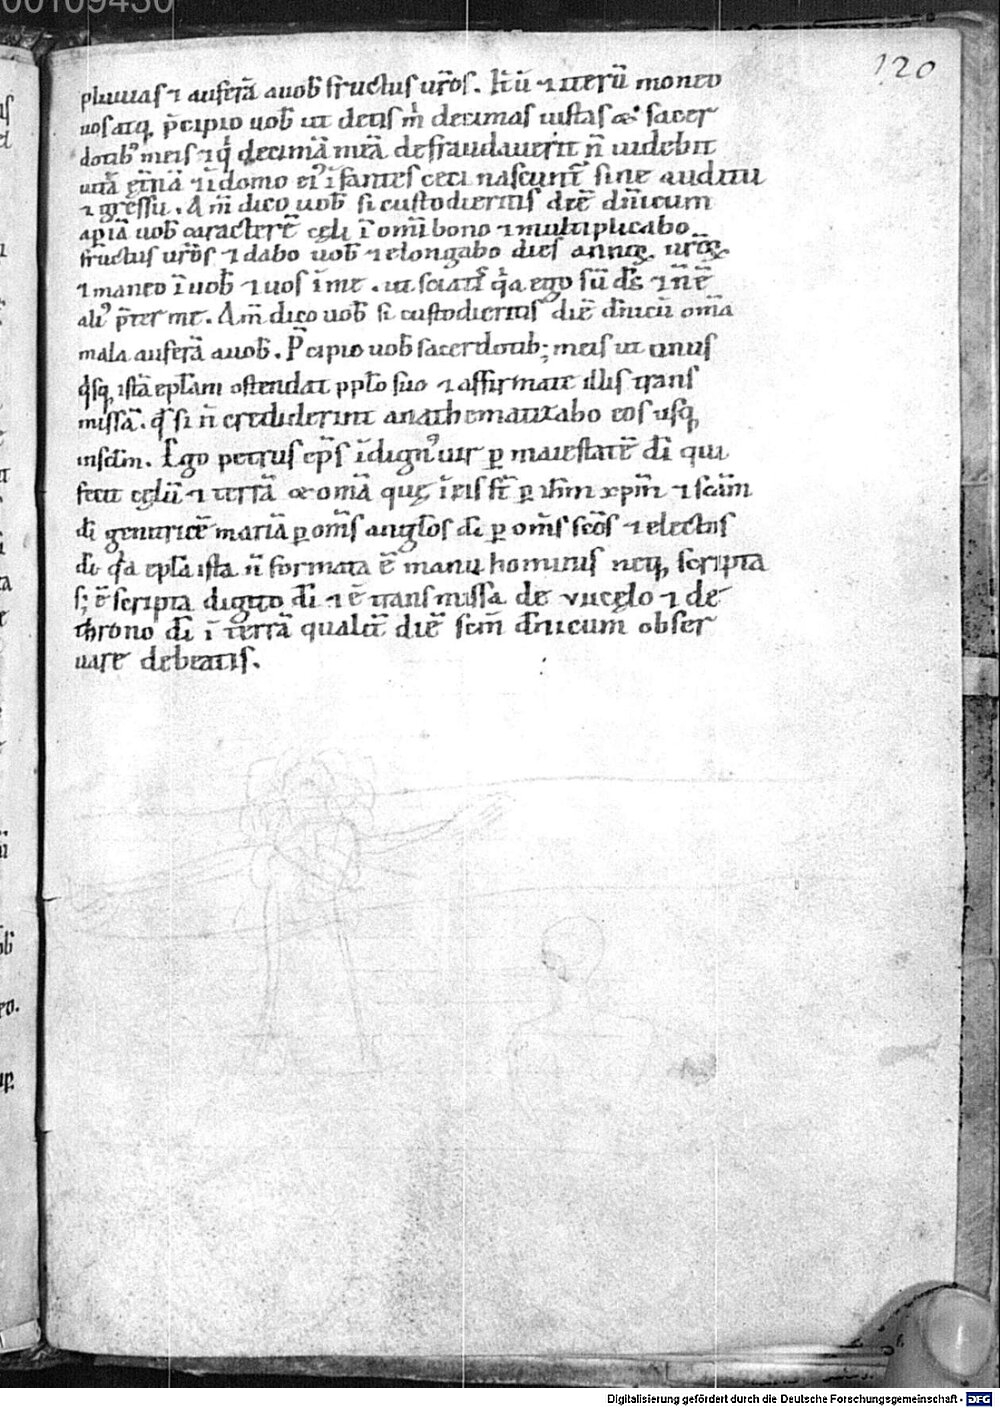 00109430
120
pluuias ⁊ auferā auob̄ fructus ur̄os. It̄ū ⁊ iterū moneo
uos atq; p̄cipio uob̄ ut detis m̄ decimas iustas & sacer
dotib; meis ⁊ q̇ decimā meā defraudauerit n̄ uidebit
uitā et̄nā ⁊ ī domo ei᾽ īfantes ceci nascunt̄ sine auditu
⁊ gressu. Am̄ dico uob̄ si custodieritis diē dn̄icum
apiā uob̄ caractere cęli ī om̄i bono ⁊ multiplicabo
fructus ur̄os ⁊ dabo uob̄ ⁊ elongabo dies annoꝝ. ur̄oꝝ.
⁊ maneo ī uob̄ ⁊ uos ī me. ut sciatis q̇a ego sū ds̄ ⁊ n̄ ē
ali᾽ p̄ter me. Am̄ dico uob̄ si custodieritis diē dn̄icū om̄a
mala auferā auob̄. P̄cipio uob̄ sacerdotib; meis ut unus
q̇sq; istā ep̄lam ostendat pp̄lo suo ⁊ affirmate illis trans
missā. q̇ si n̄ crediderint anathematizabo eos usq;
insc̄lm. Ego petrus ep̄s īdign᾽ iur ꝑ maiestatē dī qui
fecit cęlū ⁊ terrā & om̄a quę ī eis st̄ ꝑ ih̄m xp̄m ⁊ sc̄am
dī genitricē mariā ꝑ om̄s anglos dī ꝑ om̄s sc̄os ⁊ electos
dī q̇a ep̄la ista n̄ formata ē manu hominis neq; scripta
s; ē scripta digito dī ⁊ ē transmissa de vii cęlo ⁊ de
throno dī ī terrā qualit̄ diē sc̄m dn̄icum obser
uare debeatis.
Digitalisierung gefördert durch die Deutsche Forschungsgemeinschaft - DFG